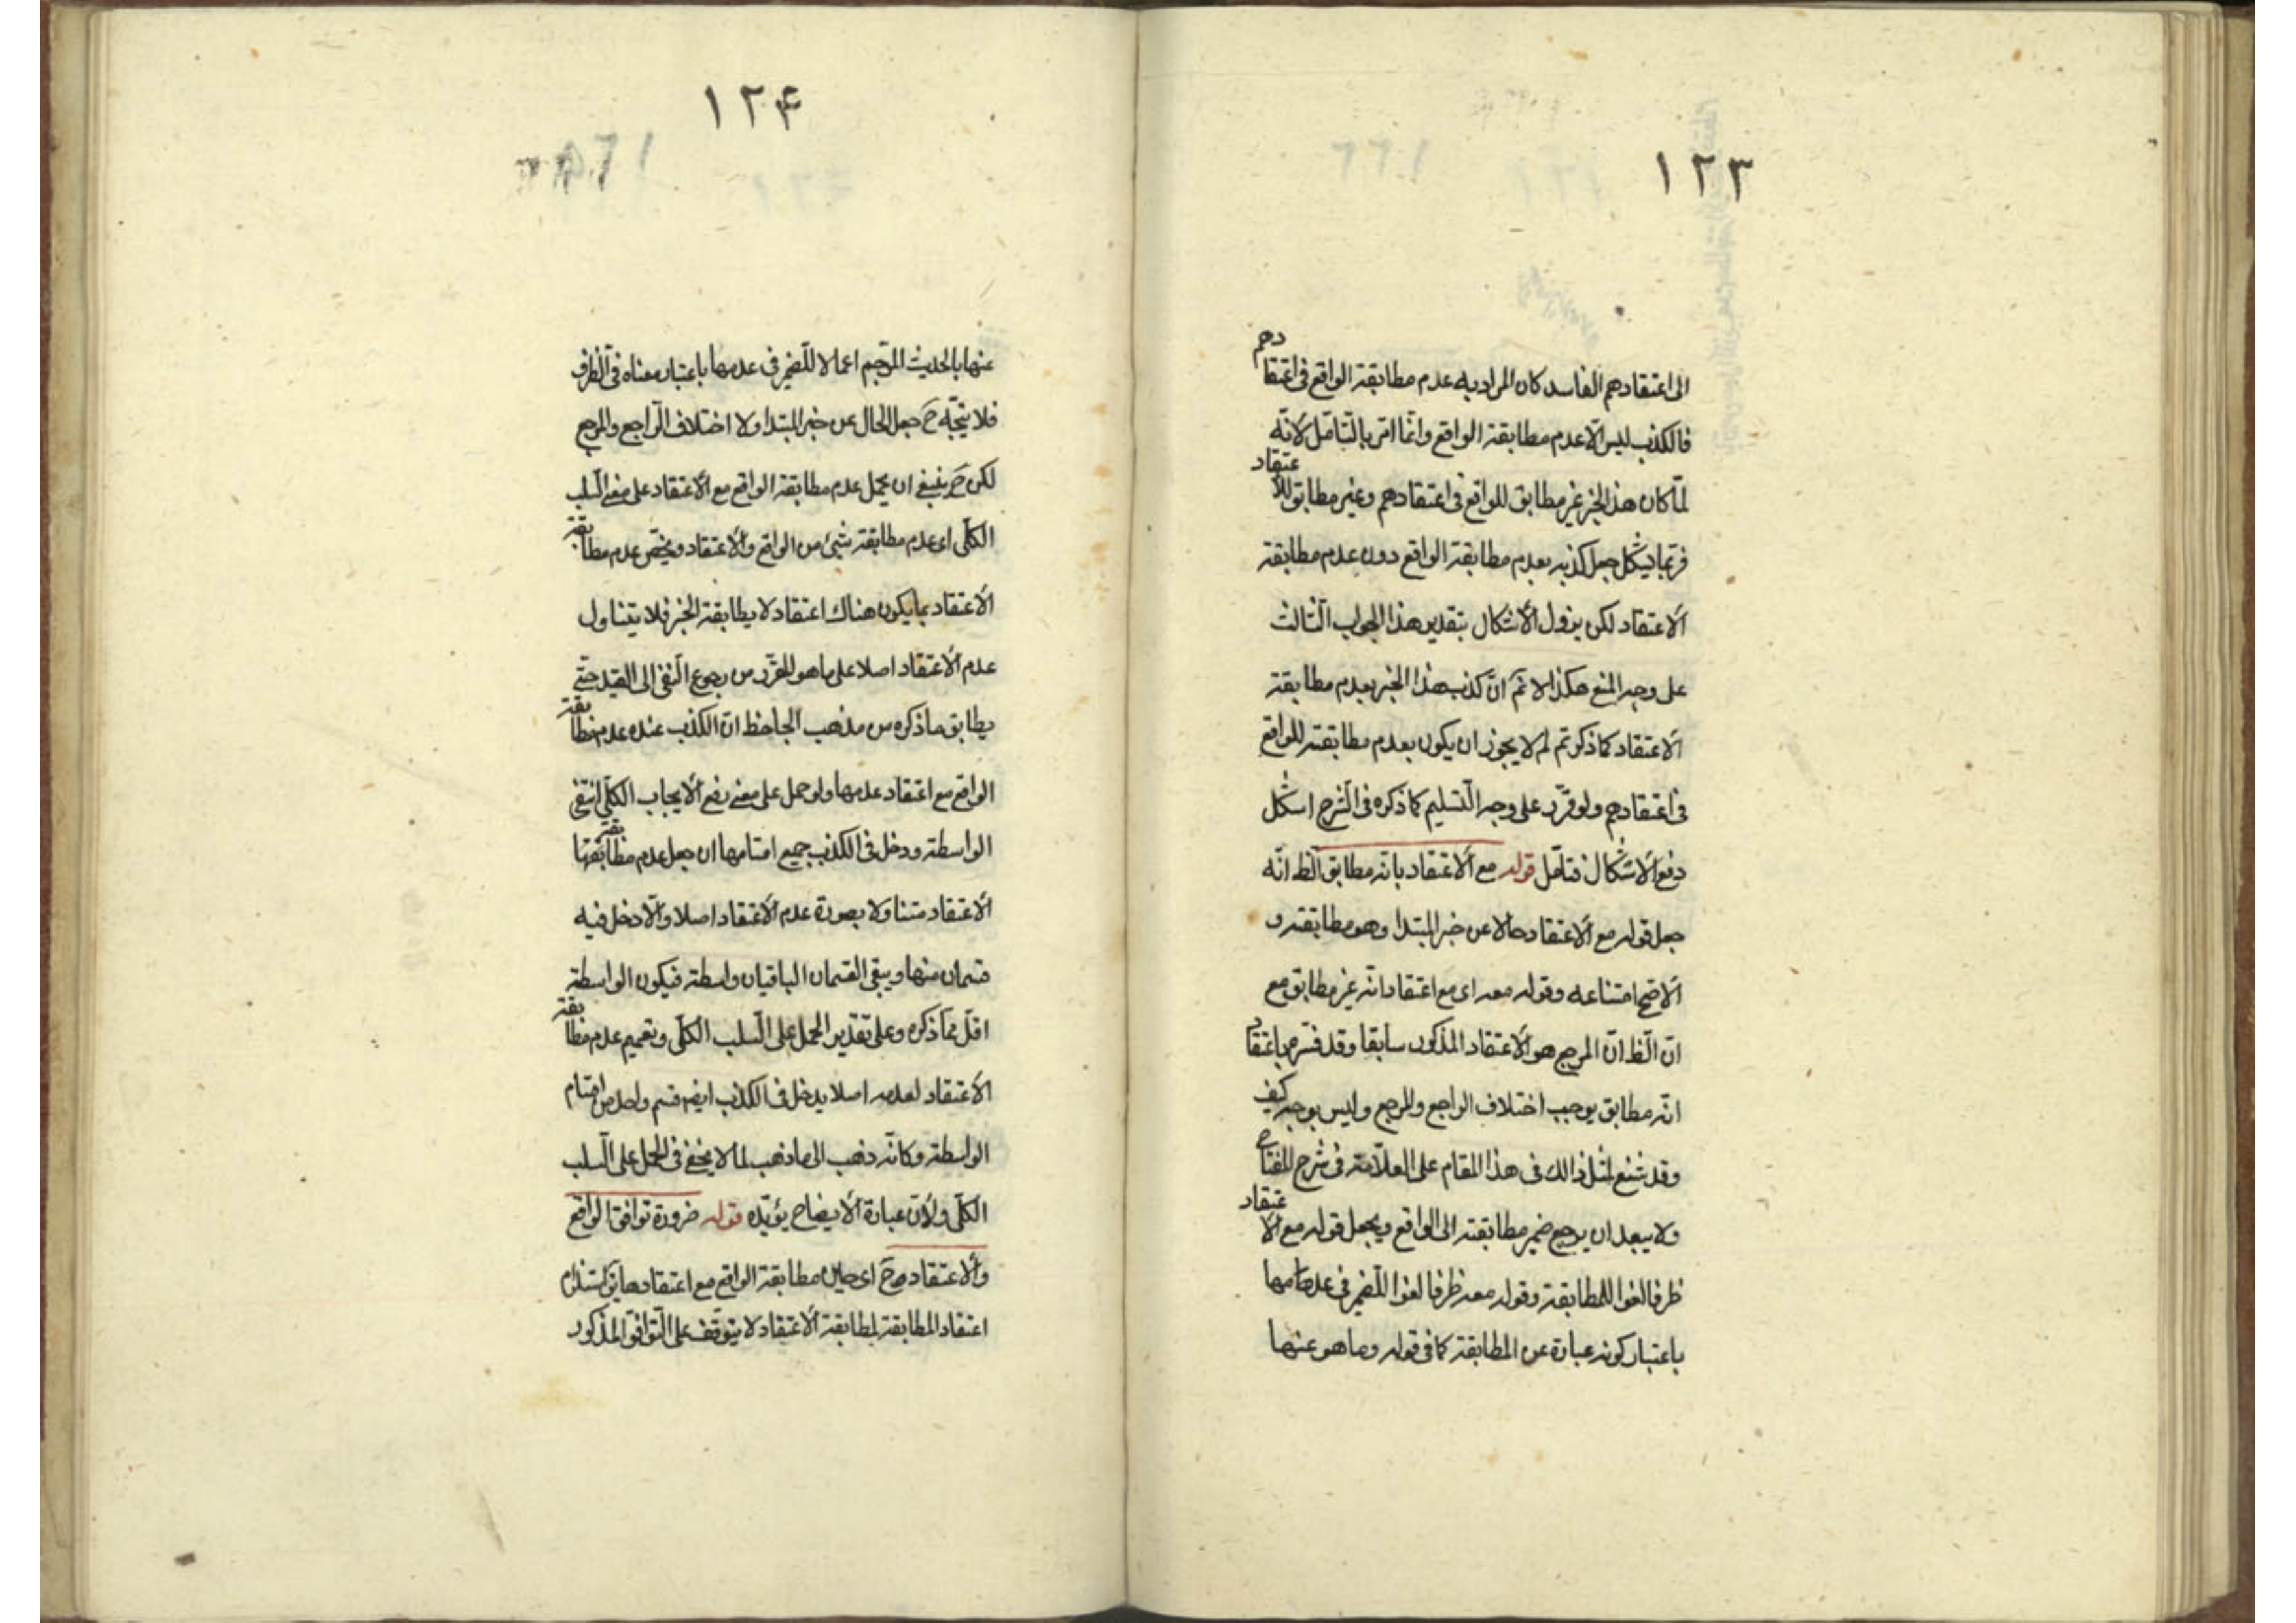 ١٢٣
الى اعتقادهم الفاسد كان المراد به عدم مطابقة الواقع فى اعتقادهم
فالكذب ليس الّا عدم مطابقة الواقع وانّما امر بالتأمّل لانّه
لمّا كان هذا الخبر غير مطابق للواقع فى اعتقادهم وغير مطابق للاعتقاد
فربّما يشكل جعل كذبه بعدم مطابقة الواقع دون عدم مطابقة
الاعتقاد لكن يزول الأشكال بتقدير هذا الجواب الثّالث
على وجه المنع هكذا لا نمّ انّ كذب هذا الخبر بعدم مطابقة
الاعتقاد كما ذكرتم لم لا يجوز ان يكون بعدم مطابقته للواقع
فى اعتقادهم ولو قرّر على وجه التّسليم كما ذكره فى الشّرح اشكل
دفع الاشكال فتأمّل قوله مع الاعتقاد بانّه مطابق الظ انّه
جعل قوله مع الاعتقاد حالا عن خبر المبتدا وهو مطابقته و
الاصحّ امتناعه وقوله معه اى مع اعتقاد انّه غير مطابق مع
انّ الظ انّ المرجع هو الأعتقاد المذكور سابقا وقد فسّره باعتقاد
انّه مطابق يوجب اختلاف الراجع والمرجع وليس بوجه كيف
وقد شنع لمثل ذالك فى هذا المقام على العلّامة فى شرح المفتاح
ولا يبعد ان يرجع ضمير مطابقته الى الواقع ويجعل قوله مع الاعتقاد
ظرفا لغوا للمطابقة وقوله معه ظرفا لغوا للضمير فى عدمها
باعتبار كونه عبارة عن المطابقة كما فى قوله وما هو عنها
١٢۴
عنها بالحديث المرجّم اعمالا للضمير فى عدمها باعتبار معناه فى الظرف
فلا يتجّه ح جعل الحال عن خبر المبتدا ولا اختلاف الراجع والمرجع
لكن ح ينبغى ان يحمل عدم مطابقة الواقع مع الأعتقاد على معنى السلب
الكلّى اى عدم مطابقة شىء من الواقع والاعتقاد ويخصّ عدم مطابقة
الأعتقاد بما يكون هناك اعتقاد لا يطابقة الخبر فلا يتناول
عدم الأعتقاد اصلا على ما هو المقرّر من رجوع النّفى الى القيد حتّى
يطابق ما ذكره من مذهب الجاحظ انّ الكذب عنده عدم مطابقة
الواقع مع اعتقاد عدمها ولو حمل على معنى رفع الأيجاب الكلّى انتفى
الواسطة ودخل فى الكذب جميع اقسامها ان جعل عدم مطابقة
الأعتقاد متناولا بصورة عدم الأعتقاد اصلا والّا دخل فيه
قسمان منها ويبقى القسمان الباقيان واسطة فيكون الواسطة
اقلّ ممّا ذكره وعلى تقدير الحمل على السّلب الكلّى وتعميم عدم مطابقة
الأعتقاد لعدمه اصلا يدخل فى الكذب ايضه قسم واحد من اقسام
الواسطة وكانّه ذهب الى ما ذهب لما لا يخفى فى الحمل على السّلب
الكلّى ولأنّ عبارة الأيضاح يؤيّده قوله ضرورة توافق الواقع
والاعتقاد ح اى حين مطابقة الواقع مع اعتقادها استلزام
اعتقاد المطابقة لمطابقة الأعتقاد لا يتوقّف على التّوافق المذكور